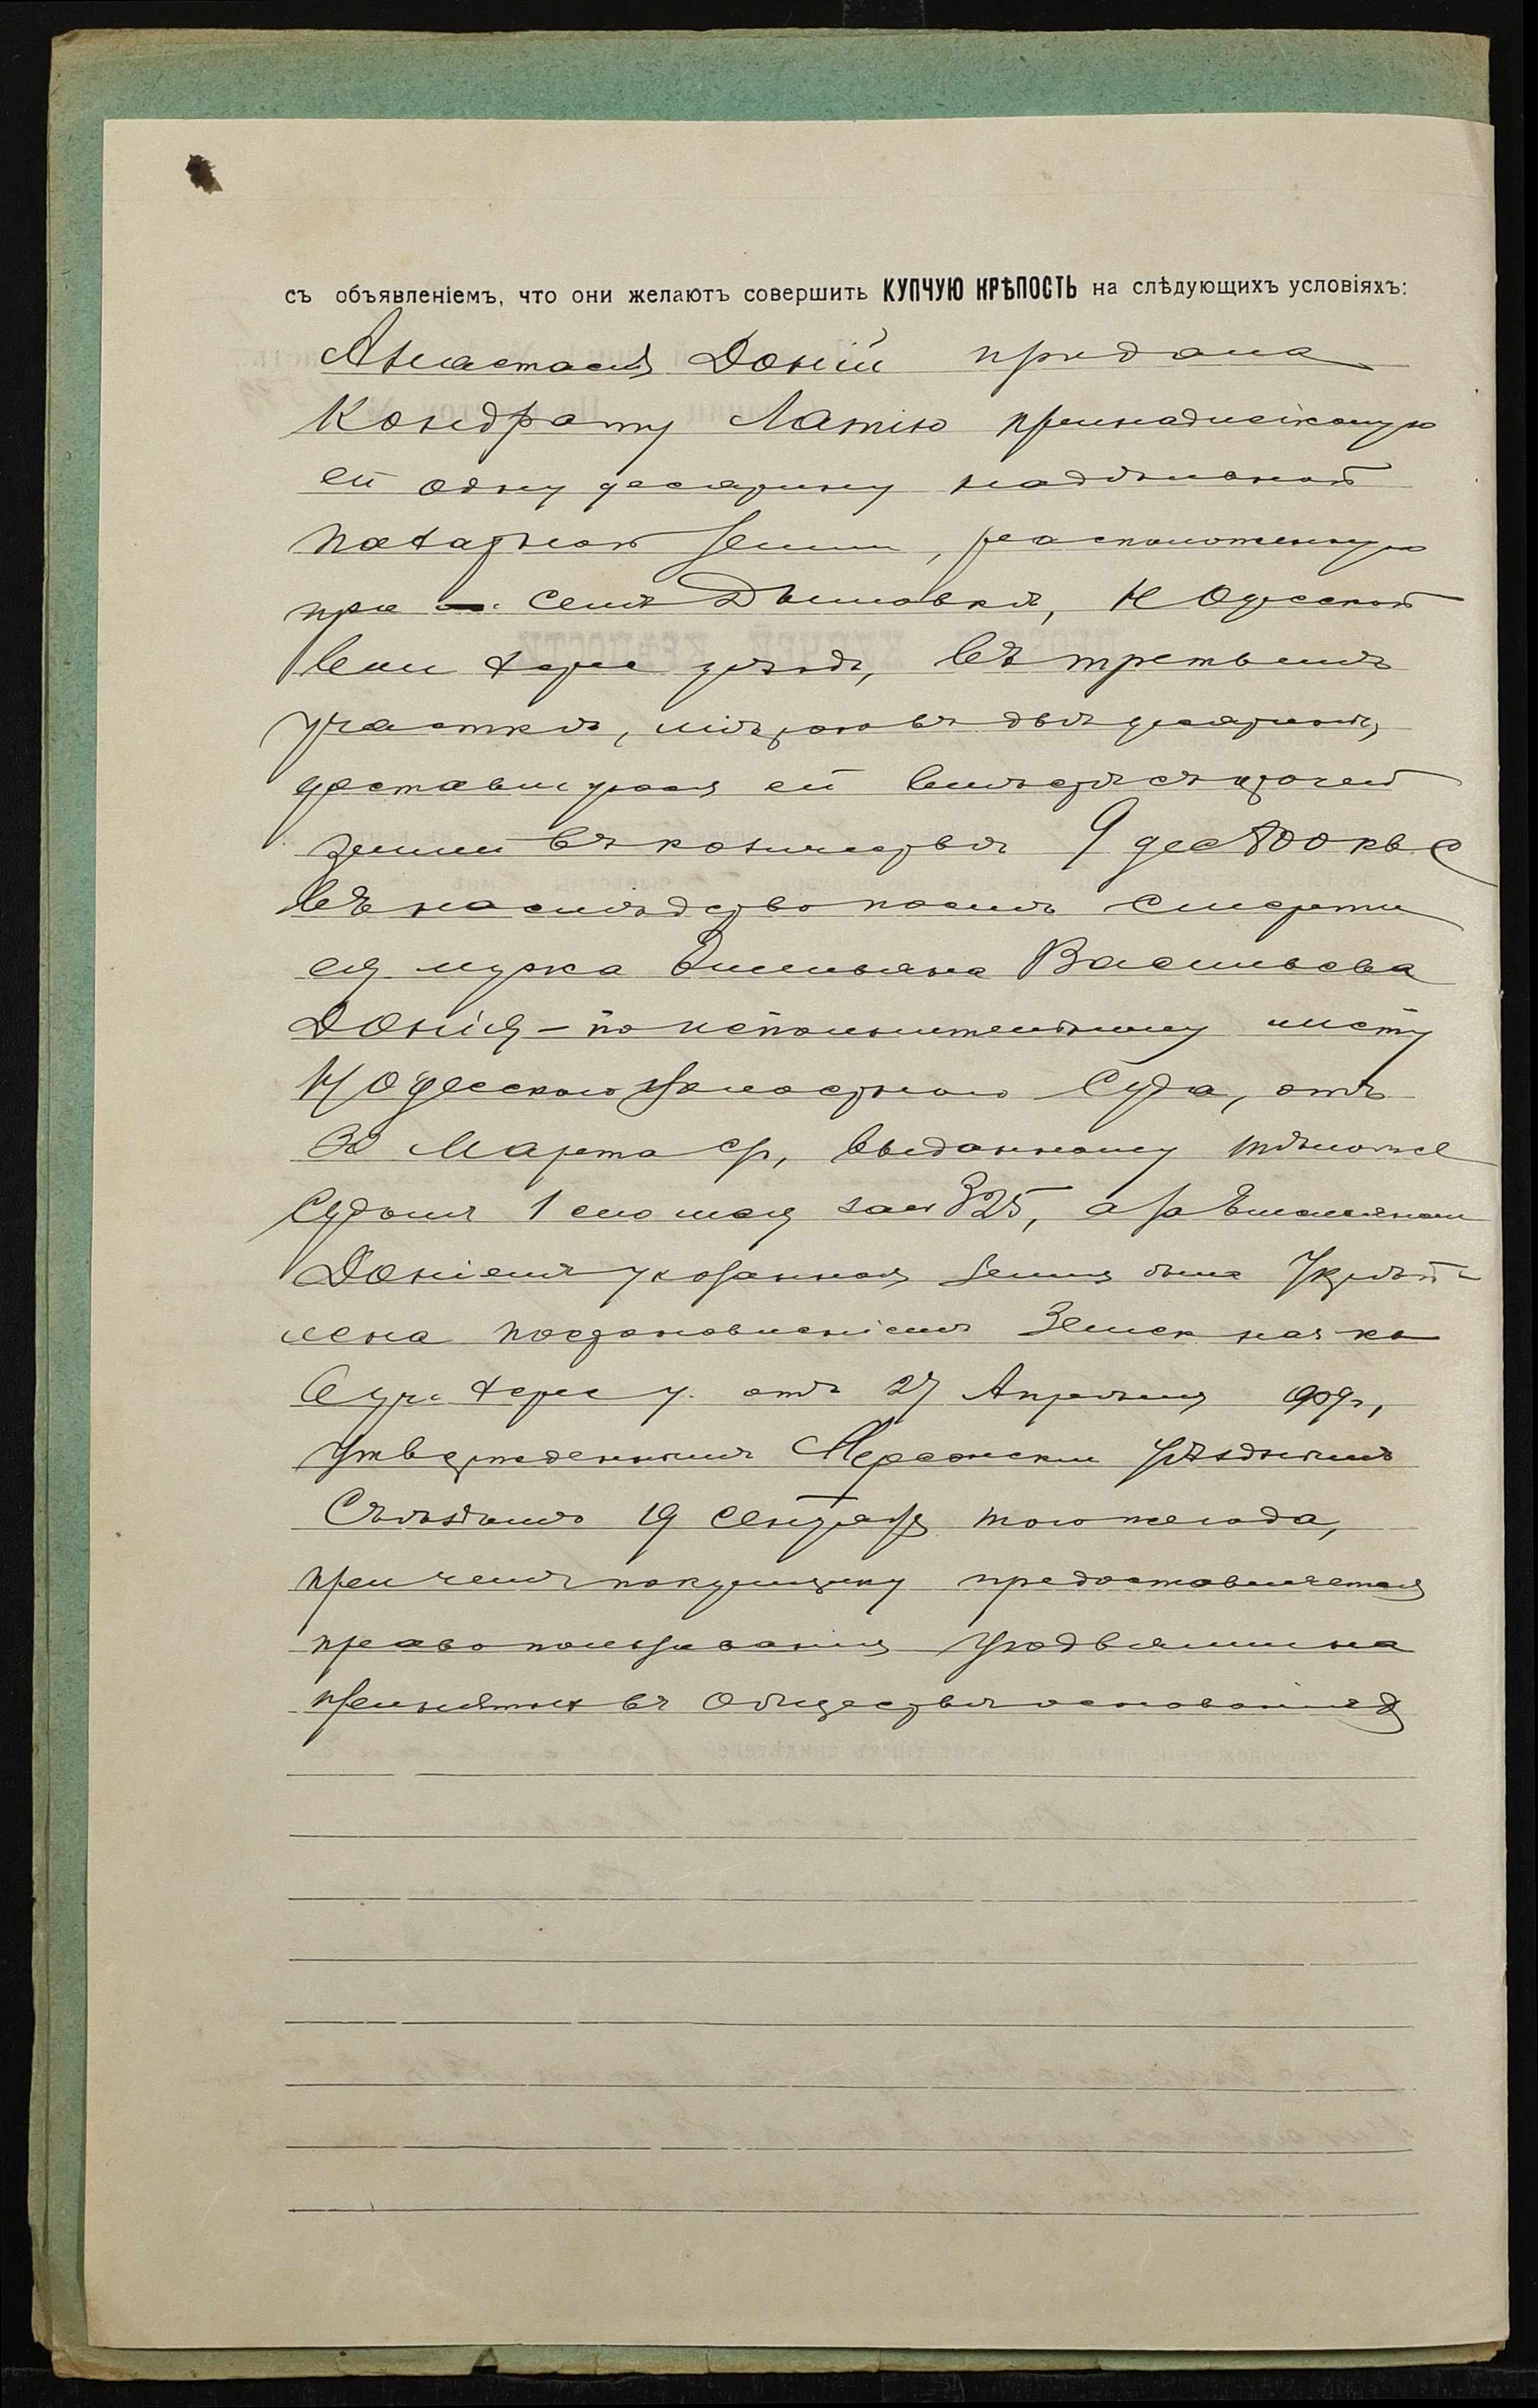 съ объявленіемъ, что они желаютъ совершить КУПЧУЮ КРѢПОСТЬ на слѣдующихъ условіяхъ:
Анастасія Доній продала
Кондрату Латію принадлежащую
ей одну десятину надѣльной
пахатной земли, расположенную
при селѣ Дымовкѣ, Н Одесской
вол Херс уѣзда, въ третьемъ
участкѣ, мѣрою въ двѣ десятины,
доставшуюся ей вмѣстѣ съ прочей
землей въ количествѣ 9 дес 800 кв с
въ наслѣдство послѣ смерти
ея мужа Емельяна Васильева
Донія - по исполнительному листу
Н Одесского Волостного Суда, отъ
Марта с/г, выданному тѣмъ же
Судомъ 1 сего мая за № 325, а за Емельяномъ
Доніемъ указанная земля была Укрѣп-
лена постановленіемъ Земск нач ка
6 уч. Херс у. отъ 27 Апрѣля 909 г,
утвержденнымъ Херсонскимъ Уѣзднымъ
Съѣздомъ 19 сентября того же года,
при чемъ покупщику предоставляется
право пользованія угодьями на
принятыхъ въ Обществѣ основаніяхъ